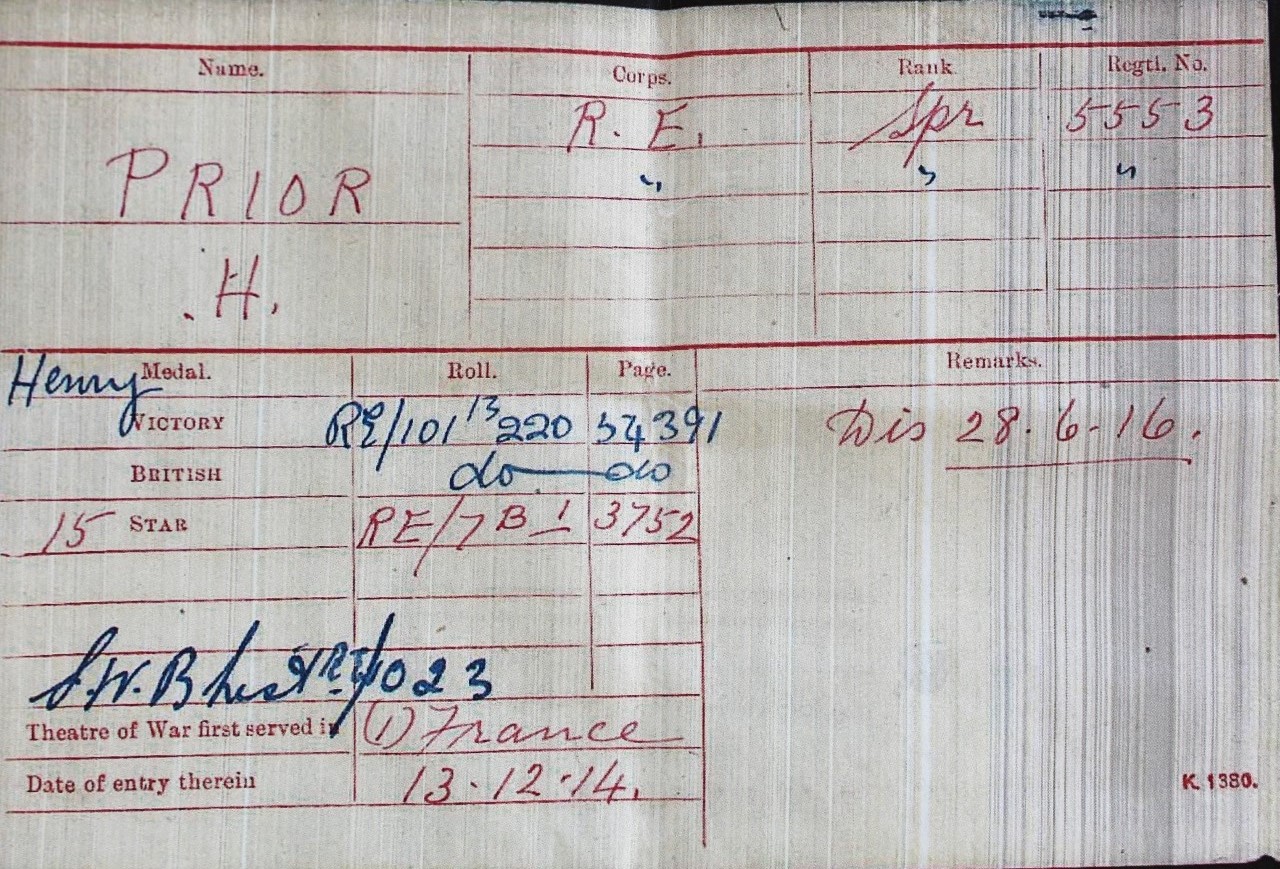 Name. Corps. Rank Regtl. No.
PRIOR R. E. Spr 5553
" " "
.H.
Henry
Medal. Roll. Page. Remarks.
VICTORY RE/101 13 220 34391 Dis 28.6-16.
BRITISH do — do
15 STAR RE/7 B 1 3752
S.W.B List RE/1023
Theatre of War first served in (1) France
Date of entry therein 13.12.14.
K. 1380.